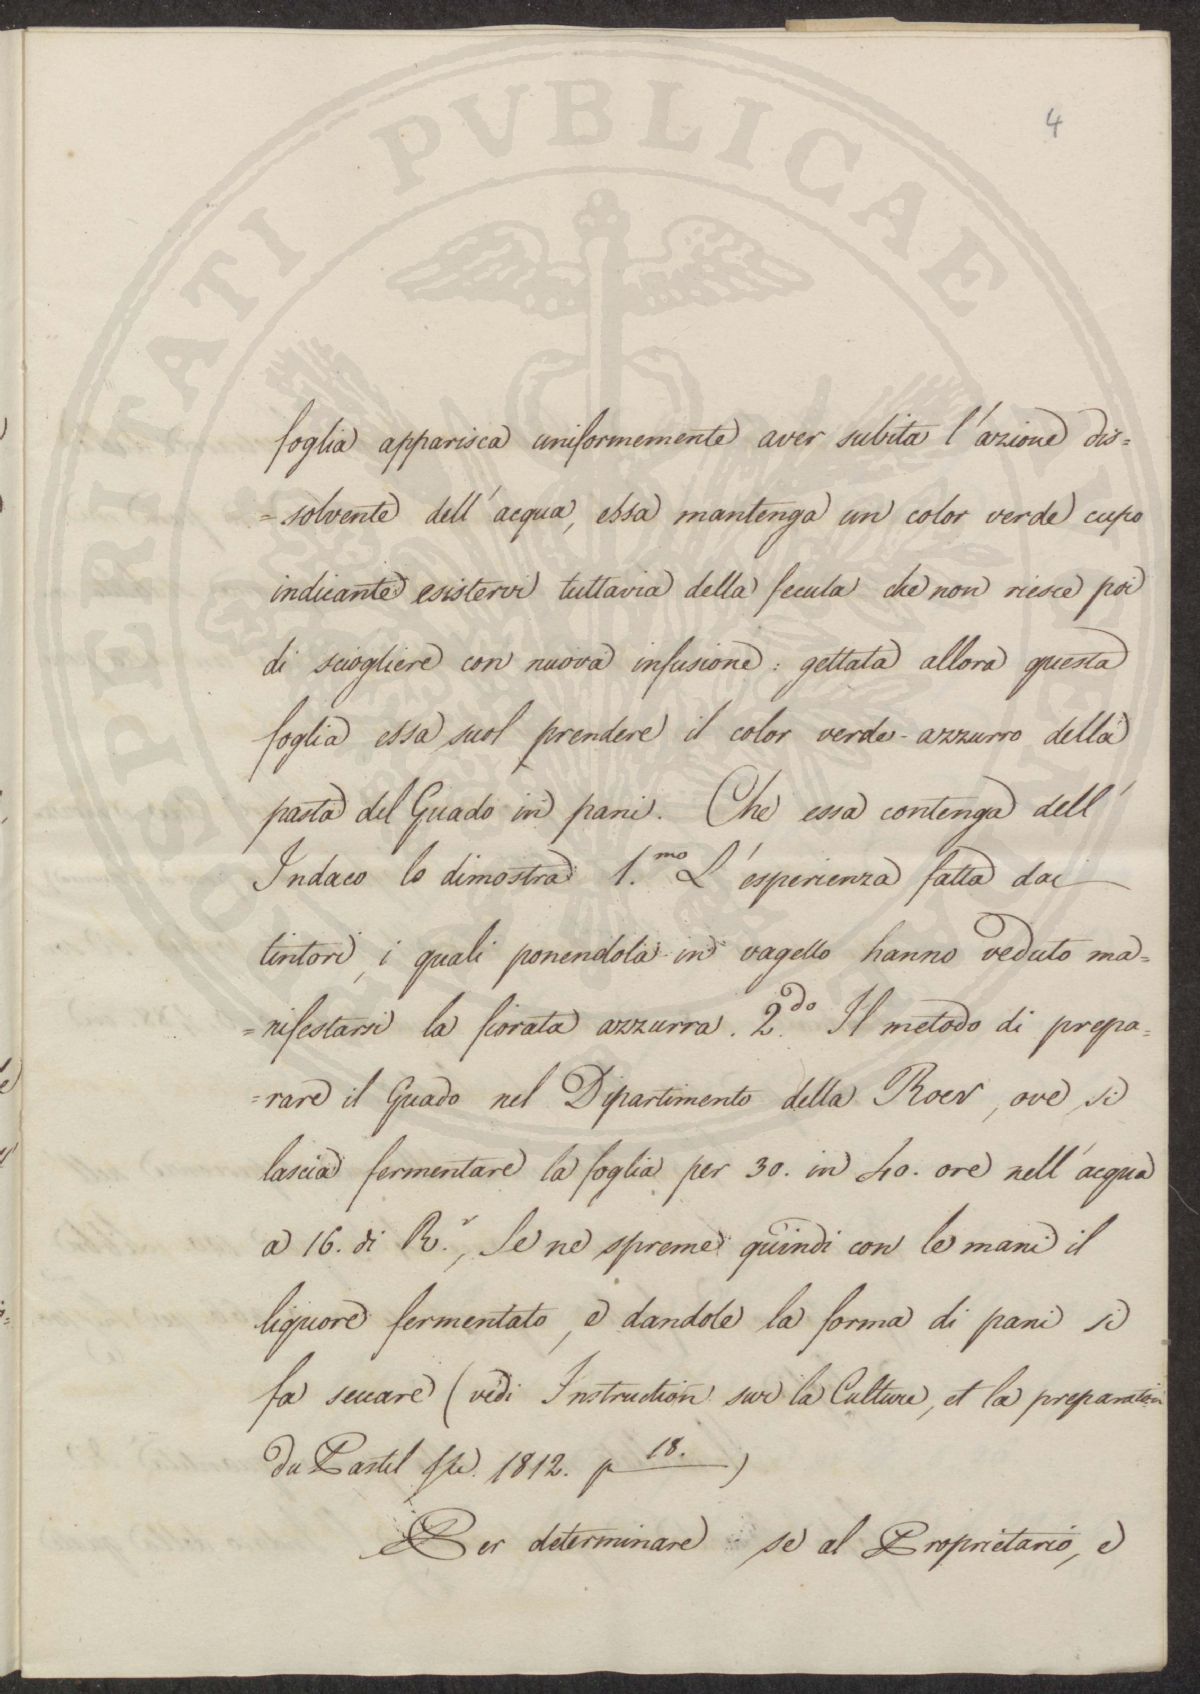 4
foglia apparisca uniformemente aver subita l'azione dis=
=solvente dell'acqua, essa mantenga un color verde cupo
indicante esistervi tuttavia della fecula che non riesce poi
di sciogliere con nuova infusione: gettata allora questa
foglia essa suol prendere il color verde-azzurro della
pasta del Guado in pani. Che essa contenga dell'
Indaco lo dimostra 1.mo L'esperienza fatta dai
tintori, i quali ponendola in vagello hanno veduto ma=
=nifestarsi la fiorata azzurra. 2.do Il metodo di prepa=
=rare il Guado nel Dipartimento della Roer, ove si
lascia fermentare la foglia per 30. in 40. ore nell'acqua
a 16. di R.r, Se ne spreme quindi con le mani il
liquore fermentato, e dandole la forma di pani si
fa seccare (vedi Instruction sur la Culture, et la preparation
du Pastel 1812. p 18.)
Per determinare se al Proprietario, e
SPERITATI PVBLICAE